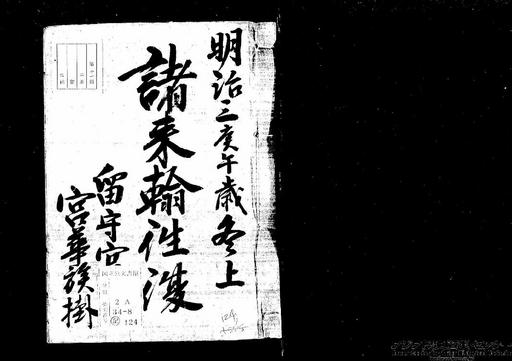 明治三庚午歳冬上
諸来翰往復
留守官
宮華族掛
国立公文書館
2A
34-8
124